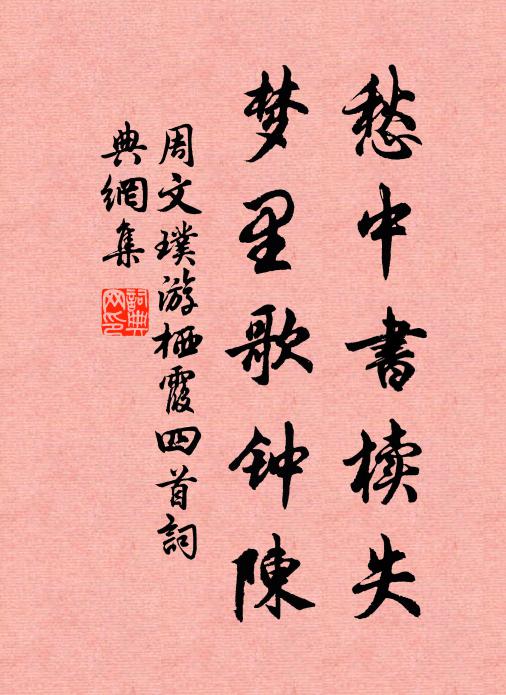 愁中書椟失
梦里歌钟陳
周文璞游栖霞四首詞
典網集
詞典網印